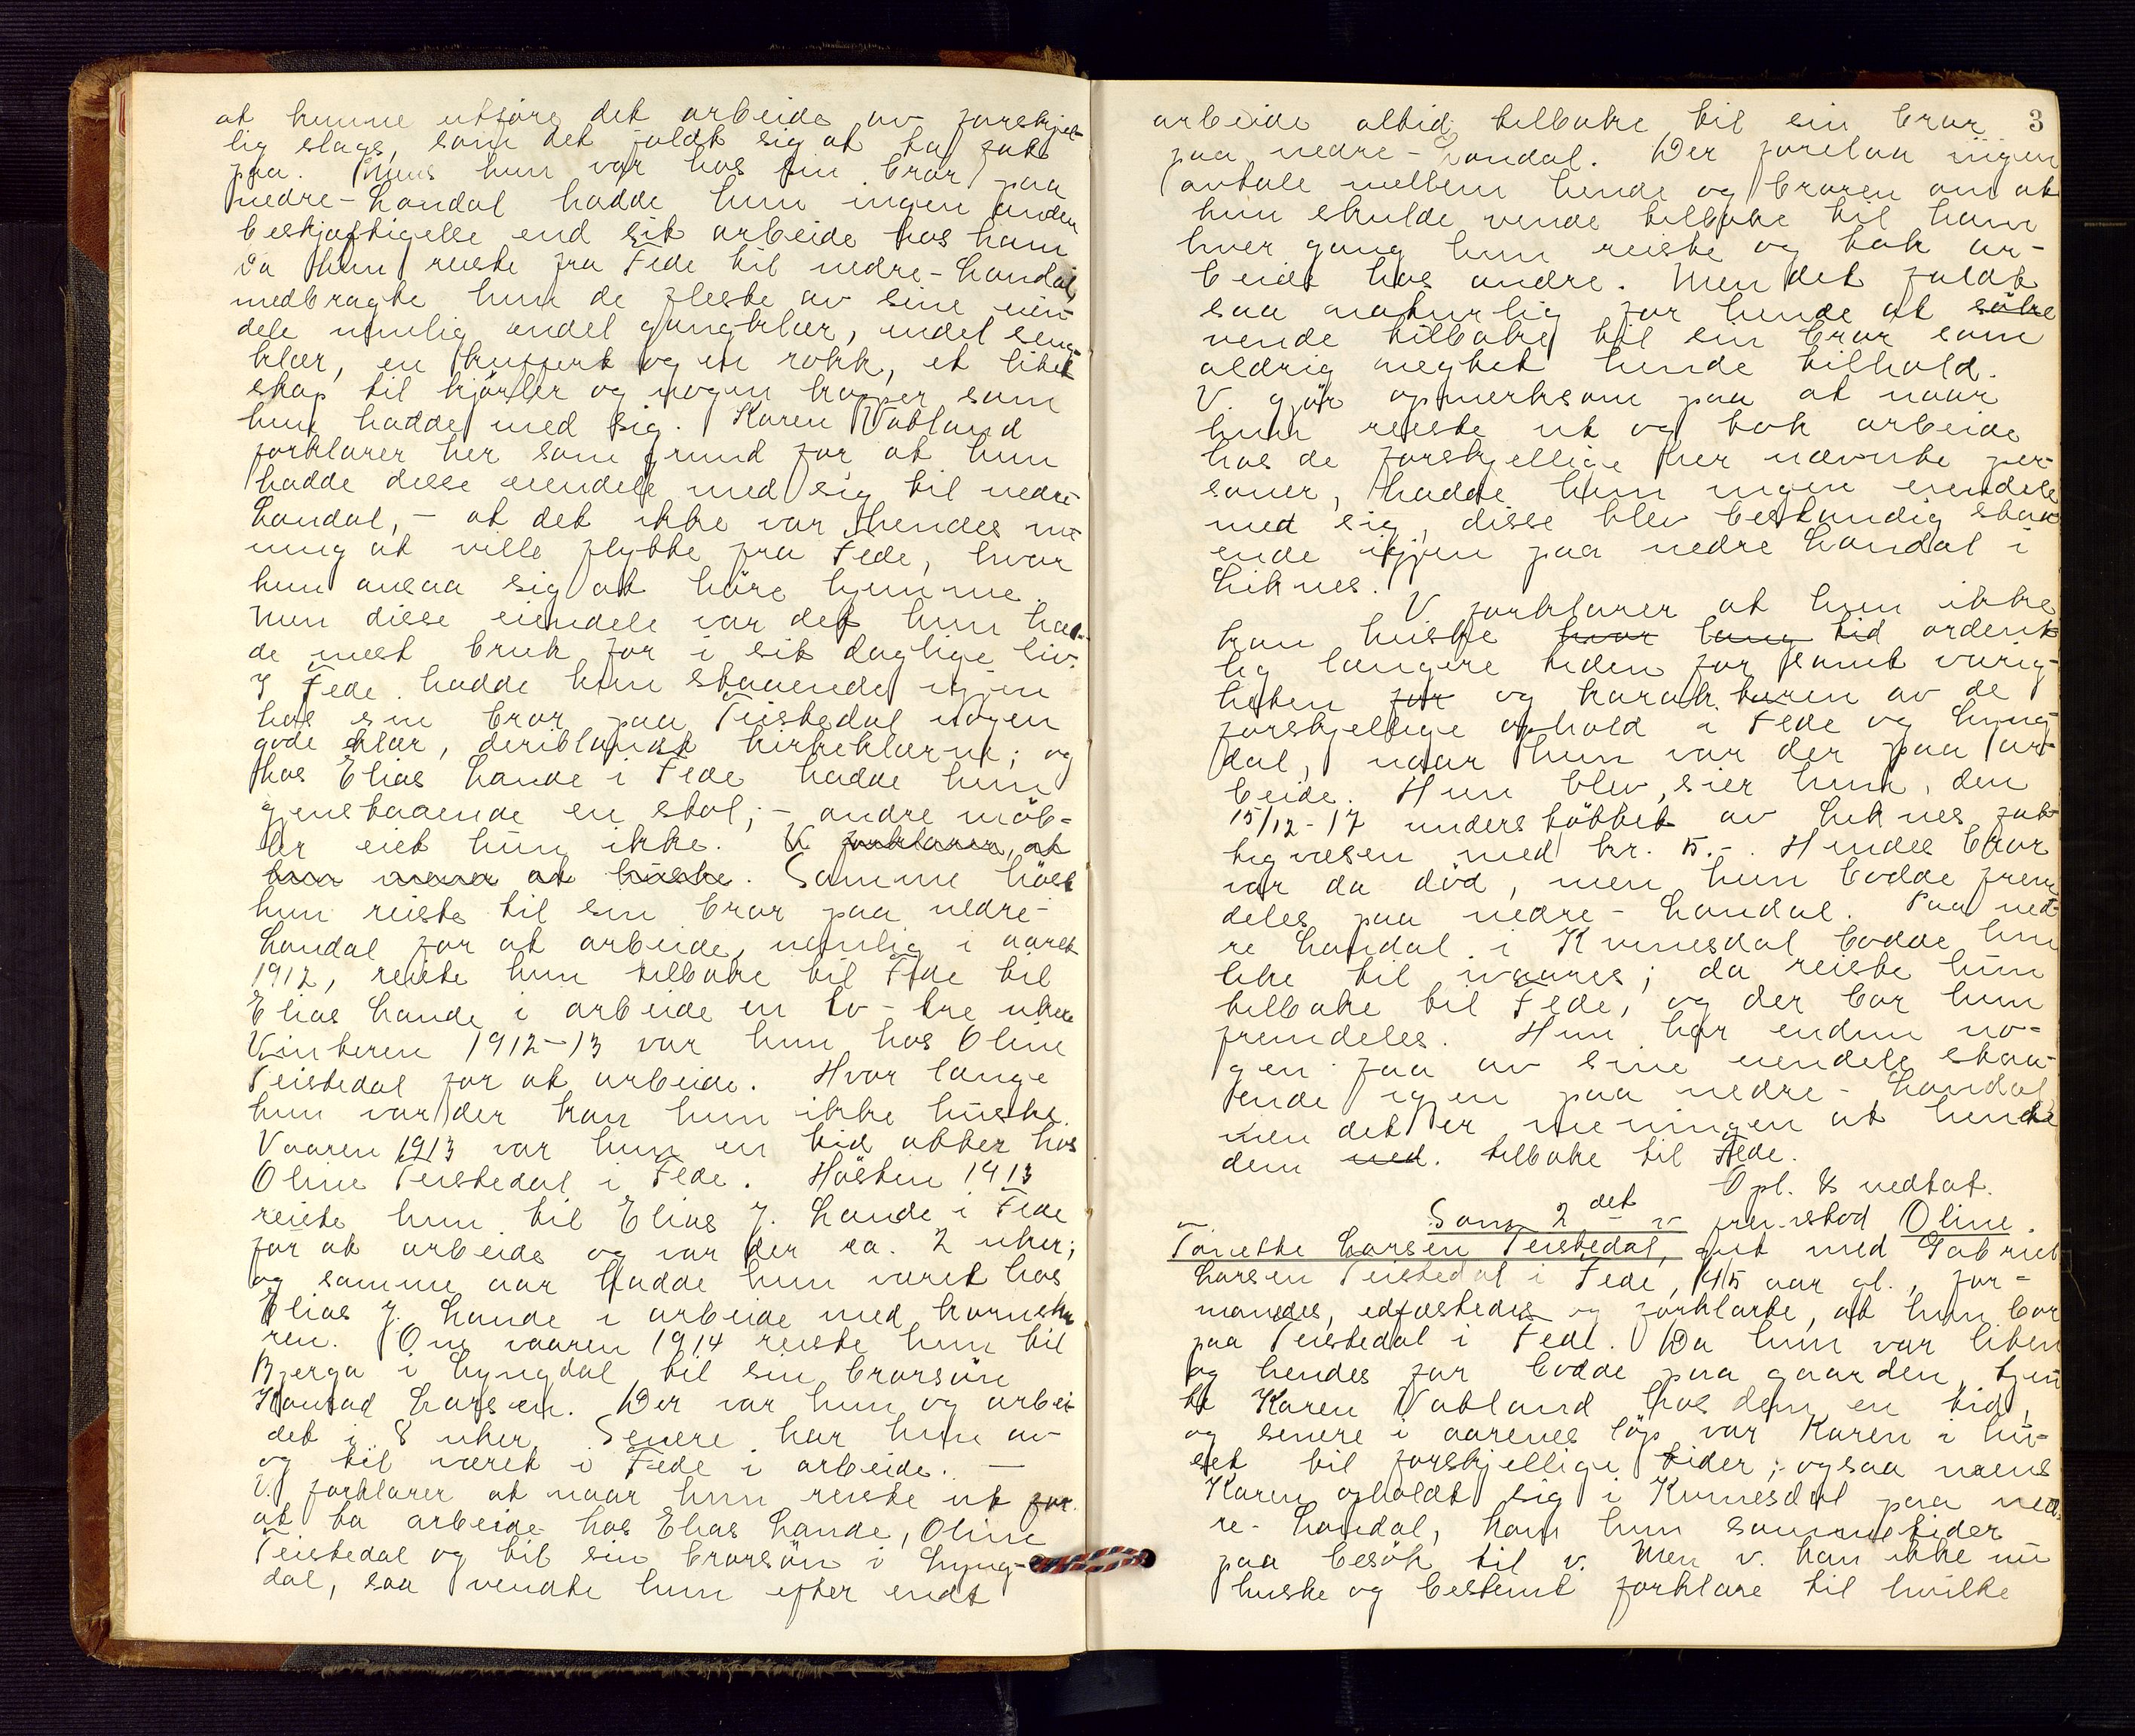 at kunne utføre det arbeide av forskjel-
lig slags, som det faldt sig at ta fat
paa. Mens hun var hos sin bror paa
nedre-Landal hadde hun ingen anden
beskjæftigelse end sit arbeide hos ham
Da hun reiste fra Fede til nedre-Landal,
medbragte hun de fleste av sine eien-
dele nemlig endel gangklær, endel seng-
klær, en kuffert og en rokk, et litet
skap til kjørler og nogen kopper som
hun hadde med sig. Karen Vatland
forklarer her som grund for at hun
hadde disse eiendele med sig til nedre-
Landal, - at det ikke var hendes me-
ning at ville flytte fra Fede, hvor
hun ansaa sig at høre hjemme.
Men disse eiendele var det hun had-
de mest bruk for i sit daglige liv.
I Fede hadde hun staaende igjen
hos sin bror paa Teistedal nogen
gode klær, deriblandt kirkeklærne; og
hos Elias Lande i Fede hadde hun
gjenstaaende en stol; - andre møb-
ler eiet hun ikke. V. forklarer, at
hun mener at huske. Samme høst
hun reiste til sin bror paa nedre-
Landal for at arbeide, nemlig i aaret
1912, reiste hun tilbake til Fede til
Elias Lande i arbeide en to-tre uker
Vinteren 1912-13 var hun hos Oline
Teistedal for at arbeide. Hvor længe
hun var der kan hun ikke huske.
Vaaren 1913 var hun en tid atter hos
Oline Teistedal i Fede. Høsten 1913
reiste hun til Elias J. Lande i Fede
for at arbeide og var der ca. 2 uker;
og samme aar hadde hun været hos
Elias J. Lande i arbeide med kornsku-
ren. Om vaaren 1914 reiste hun til
Bjerga i Lyngdal til sin brorsøn
Konrad Larsen. Der var hun og arbei-
det i 8 uker. Senere har hun av
og til været i Fede i arbeide. -
V. forklarer at naar hun reiste ut for
at ta arbeide hos Elias Lande, Oline
Teistedal og til sin brorsøn i Lyng-
dal, saa vendte hun efter endt
3
arbeide altid tilbake til sin bror
paa nedre-Landal. Der forelaa ingen
avtale mellem hende og broren om at
hun skulde vende tilbake til ham
hver gang hun reiste og tok ar-
beide hos andre. Men det faldt
saa naturlig for hende at søke
vende tilbake til sin bror som
aldrig negtet hende tilhold.
V. gjør opmerksom paa at naar
hun reiste ut og tok arbeide
hos de forskjellige her nævnte per-
soner, hadde hun ingen eiendele
med sig, disse blev bestandig staa-
ende igjen paa nedre Landal i
Liknes.
V. forklarer at hun ikke
kan huske hvor lang tid ordent-
lig længere tiden for samt varig-
heten for og karakteren av de
forskjellige ophold i Fede og Lyng-
dal, naar hun var der paa ar-
beide. Hun blev, sier hun, den
15/12-17 understøttet av Liknes fat-
tigvæsen med kr. 5.-. Hendes bror
var da død, men hun bodde frem-
deles paa nedre-Landal. Paa ned-
re Landal i Kvinesdal bodde hun
like til ivaares; da reiste hun
tilbake til Fede, og der bor hun
fremdeles. Hun har endnu no-
gen faa av sine eiendele staa-
ende igjen paa nedre-Landal
men det er meningen at hente
dem ned. tilbake til Fede.
Opl. & vedtat.
Som 2det v fremstod Oline
Tonette Larsen Teistedal, gift med Gabriel
Larsen Teistedal i Fede, 45 aar gl., for-
manedes, edfæstedes og forklarte, at hun bor
paa Teistedal i Fede. Da hun var liten
og hendes far bodde paa gaarden, tjen-
te Karen Vatland hos dem en tid,
og senere i aarenes løp var Karen i hu-
set til forskjellige tider; ogsaa mens
Karen opholdt sig i Kvinesdal paa ned-
re-Landal, kom hun sommetider
paa besøk til v. Men v. kan ikke nu
huske og bestemt forklare til hvilke